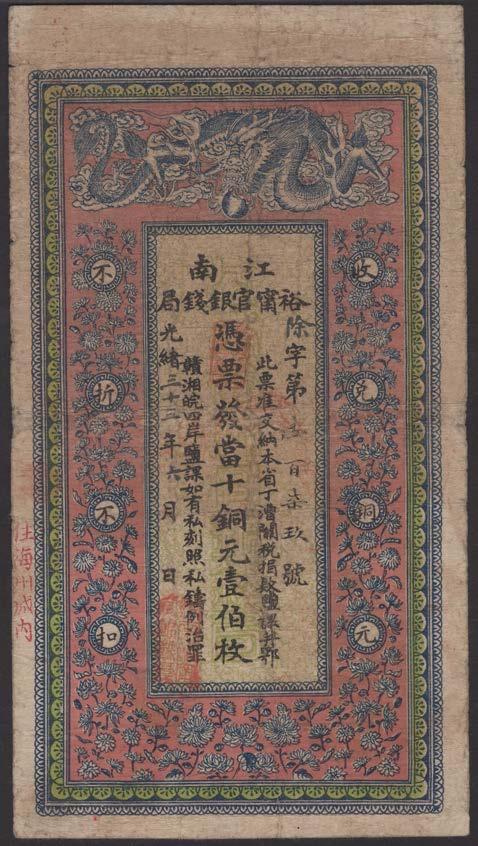 江南
裕甯官銀錢局
收兌銅元
除字第百柒玖號
此票准交納本省丁漕關稅捐款鹽課并鄂
憑票發當十銅元壹伯枚
贛湘皖四岸鹽課如有私刻照私鑄例治罪
光緒三十三年六月日
不折不扣
住海州城內